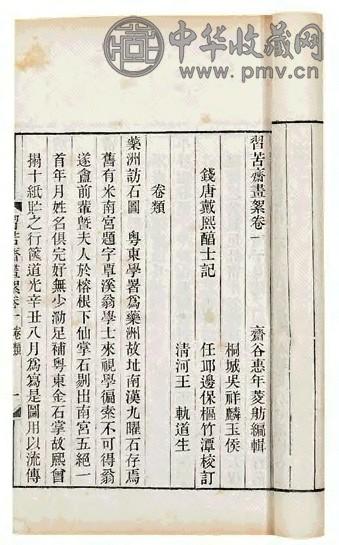 中华收藏网
www.pmv.cn
習苦齋畫絮卷一
齋谷惠年菱舫編輯
桐城吳祥麟玉侯
錢唐戴熙醕士記
任邱邊保樞竹潭校訂
清河王 軌道生
卷類
藥洲訪石圖 粵東學署為藥洲故址南漢九曜石存焉
舊有米南宮題字覃溪翁學士來視學徧索不可得翁
遂盦前輩暨夫人於榕根下仙掌石剔出南宮五絕一
首年月姓名俱完好無少泐足補粵東金石掌故熙曾
搨十紙貯之行篋道光辛丑八月為寫是圖用以流傳
習苦齋畫絮卷一 卷類 一